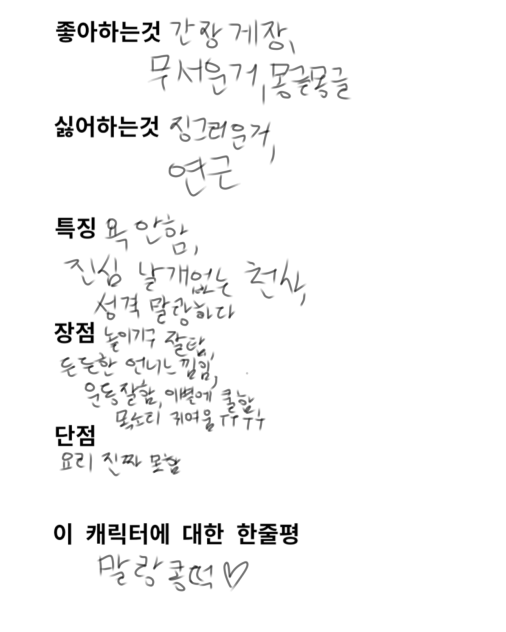 좋아하는것 간장 게장,
무서운거, 몽글몽글
싫어하는것 징그러운거,
연근
특징 욕 안함,
진심 날개없는 천사,
성격 말랑하다
장점 놀이기구 잘탐,
든든한 언니느낌임,
운동잘함, 이별에 쿨함,
목소리 귀여움ㅜㅜㅜㅜ
단점
요리 진짜 못함
이 캐릭터에 대한 한줄평
말랑콩떡♡